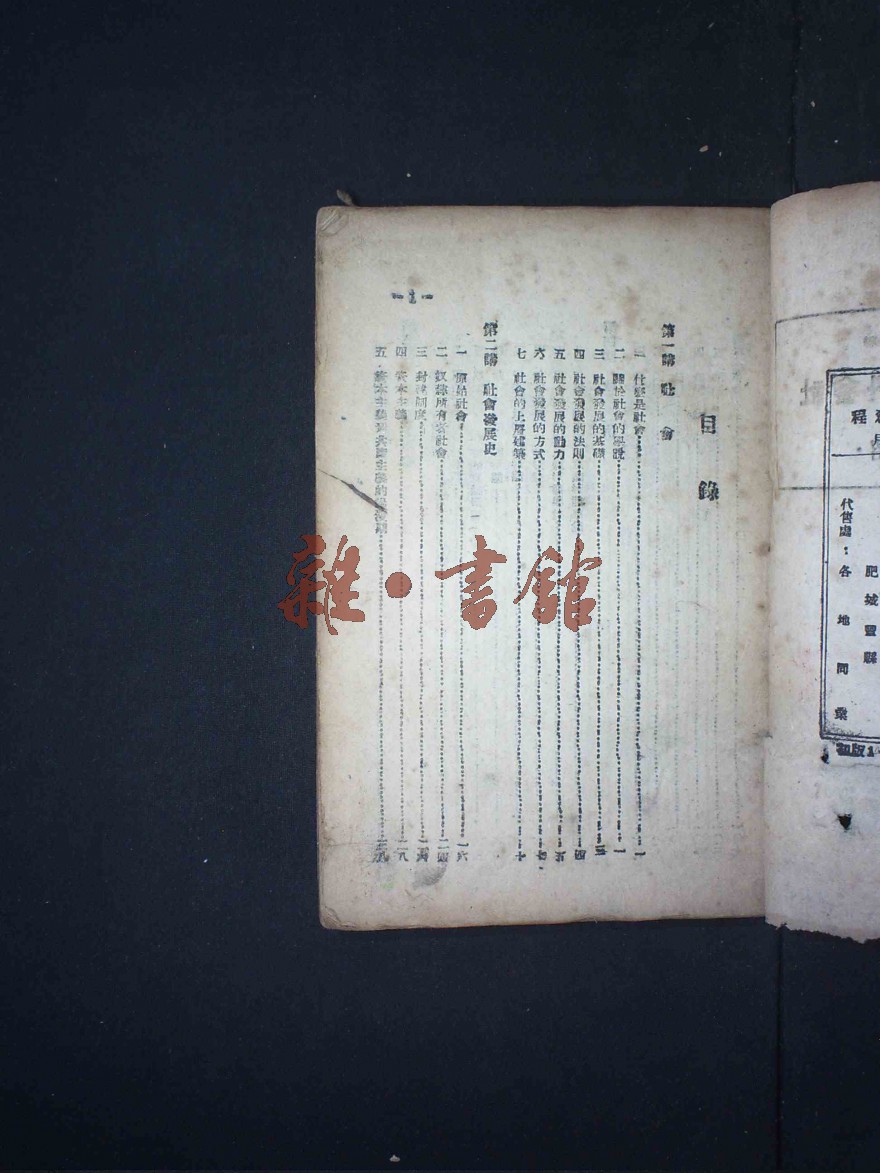 目錄
第一講 社會
一 什麼是社會 一
二 關於社會的學說 一
三 社會發展的基礎 三
四 社會發展的法則 四
五 社會發展的動力 五
六 社會發展的方式 七
七 社會的上層建築 十
第二講 社會發展史
一 原始社會 一六
二 奴隸所有者社會 二四
三 封建制度
四 資本主義 二八
五 資本主義到共產主義的
-1-
雜·書館
程
肥城豐縣
代售處：各地同業
初版1